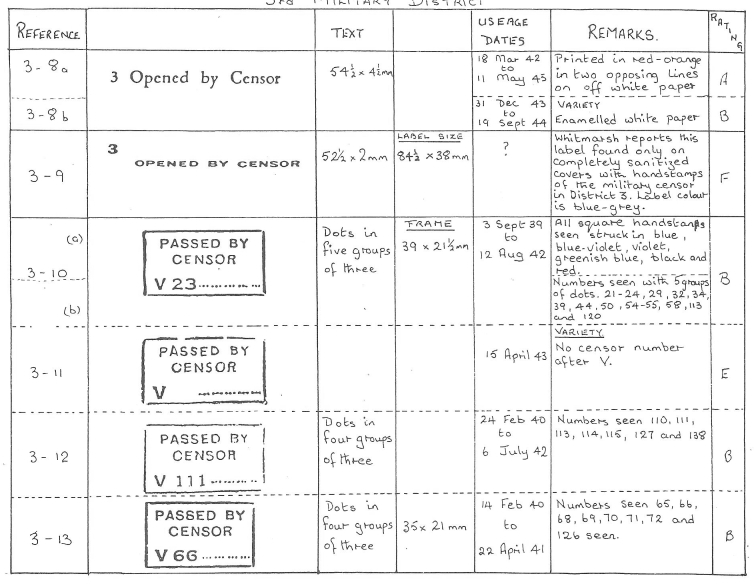 3rd MILITARY DISTRICT
REFERENCE TEXT USEAGE DATES REMARKS. RATING
3-8a
3 Opened by Censor
54½ x 4½mm
18 Mar 42
to
11 May 45
Printed in red-orange
in two opposing lines
on off white paper
A
3-8b
31 Dec 43
to
19 Sept 44
VARIETY
Enamelled white paper
B
3-9
3
OPENED BY CENSOR
52½ x 2mm
LABEL SIZE
84½ x 38mm
?
Whitmarsh reports this
label found only on
completely sanitized
covers with handstamps
of the military censor
in District 3. Label colour
is blue-grey.
F
(a)
3-10
(b)
PASSED BY
CENSOR
V 23...............
Dots in
five groups
of three
FRAME
39 x 21½mm
3 Sept 39
to
12 Aug 42
All square handstamps
seen struck in blue,
blue-violet, violet,
greenish blue, black and
red.
Numbers seen with 5 groups
of dots. 21-24, 29, 32, 34,
39, 44, 50, 54-55, 58, 113
and 120
B
3-11
PASSED BY
CENSOR
V ...............
15 April 43
VARIETY
No censor number
after V.
E
3-12
PASSED BY
CENSOR
V 111............
Dots in
four groups
of three
24 Feb 40
to
6 July 42
Numbers seen 110, 111,
113, 114, 115, 127 and 138
B
3-13
PASSED BY
CENSOR
V 66............
Dots in
four groups
of three
35 x 21 mm
14 Feb 40
to
22 April 41
Numbers seen 65, 66,
68, 69, 70, 71, 72 and
126 seen.
B